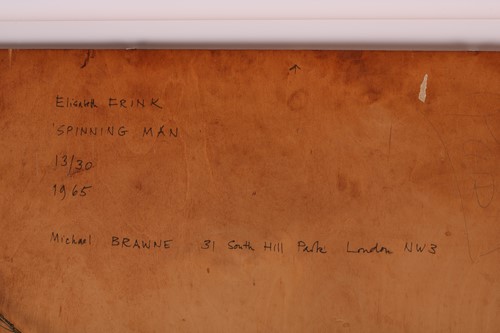 Elisabeth FRINK
'SPINNING MAN
13/30
1965
Michael BRAWNE 31 South Hill Park London NW3